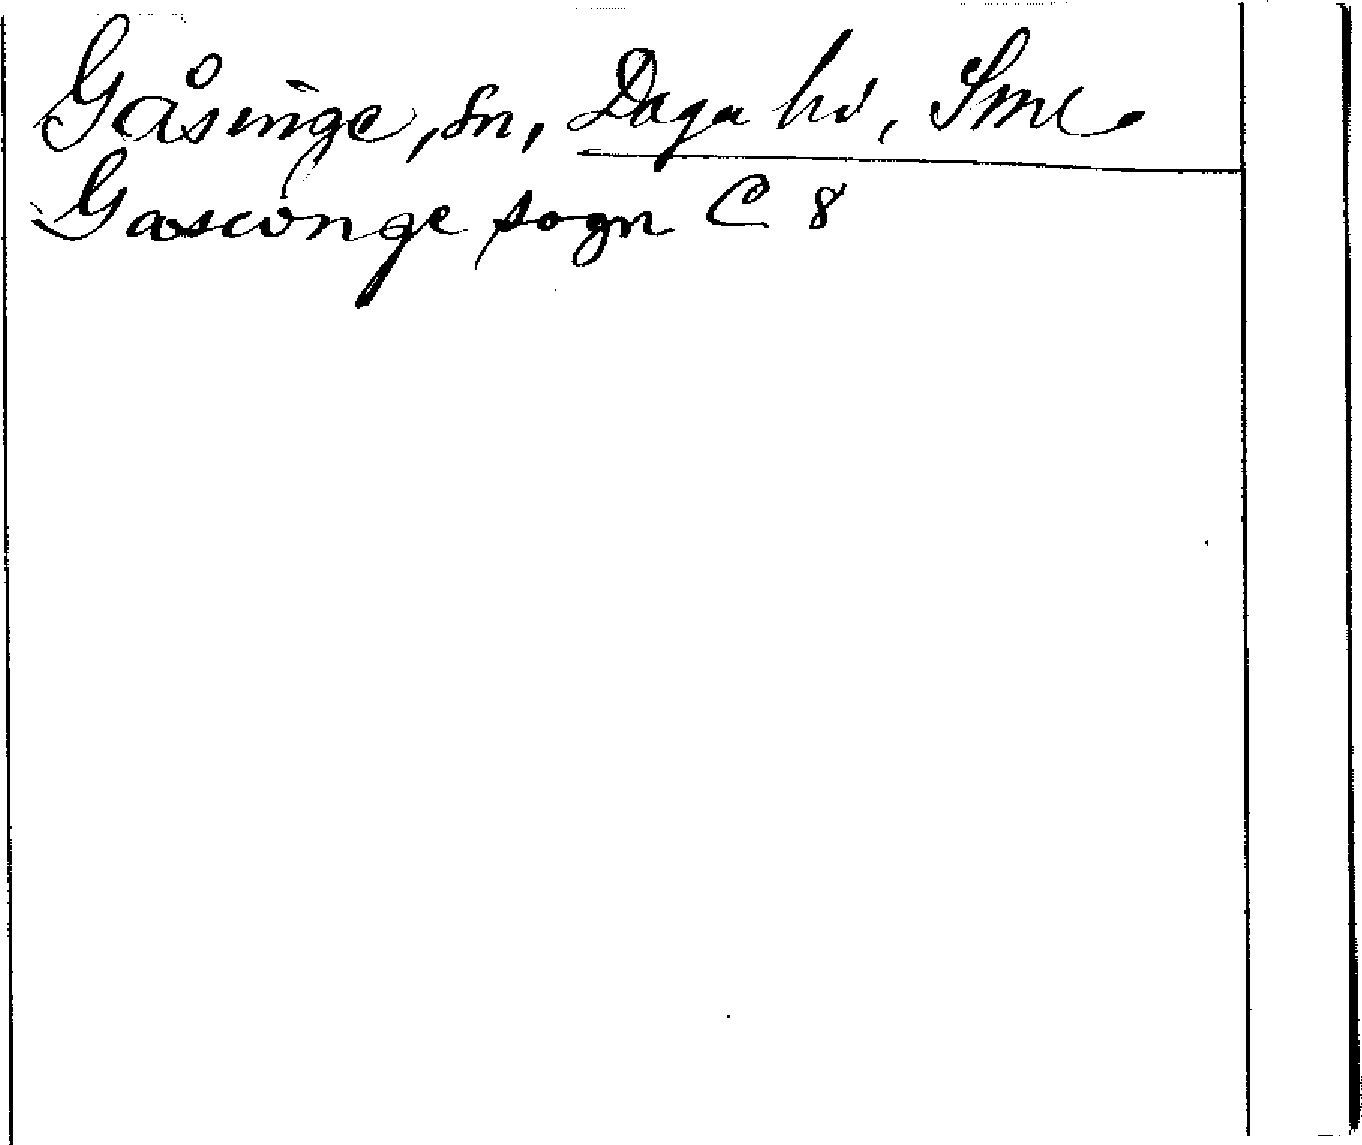 Gåsinge, sn, Daga hd, Sml.
Gasconge sogn C 8